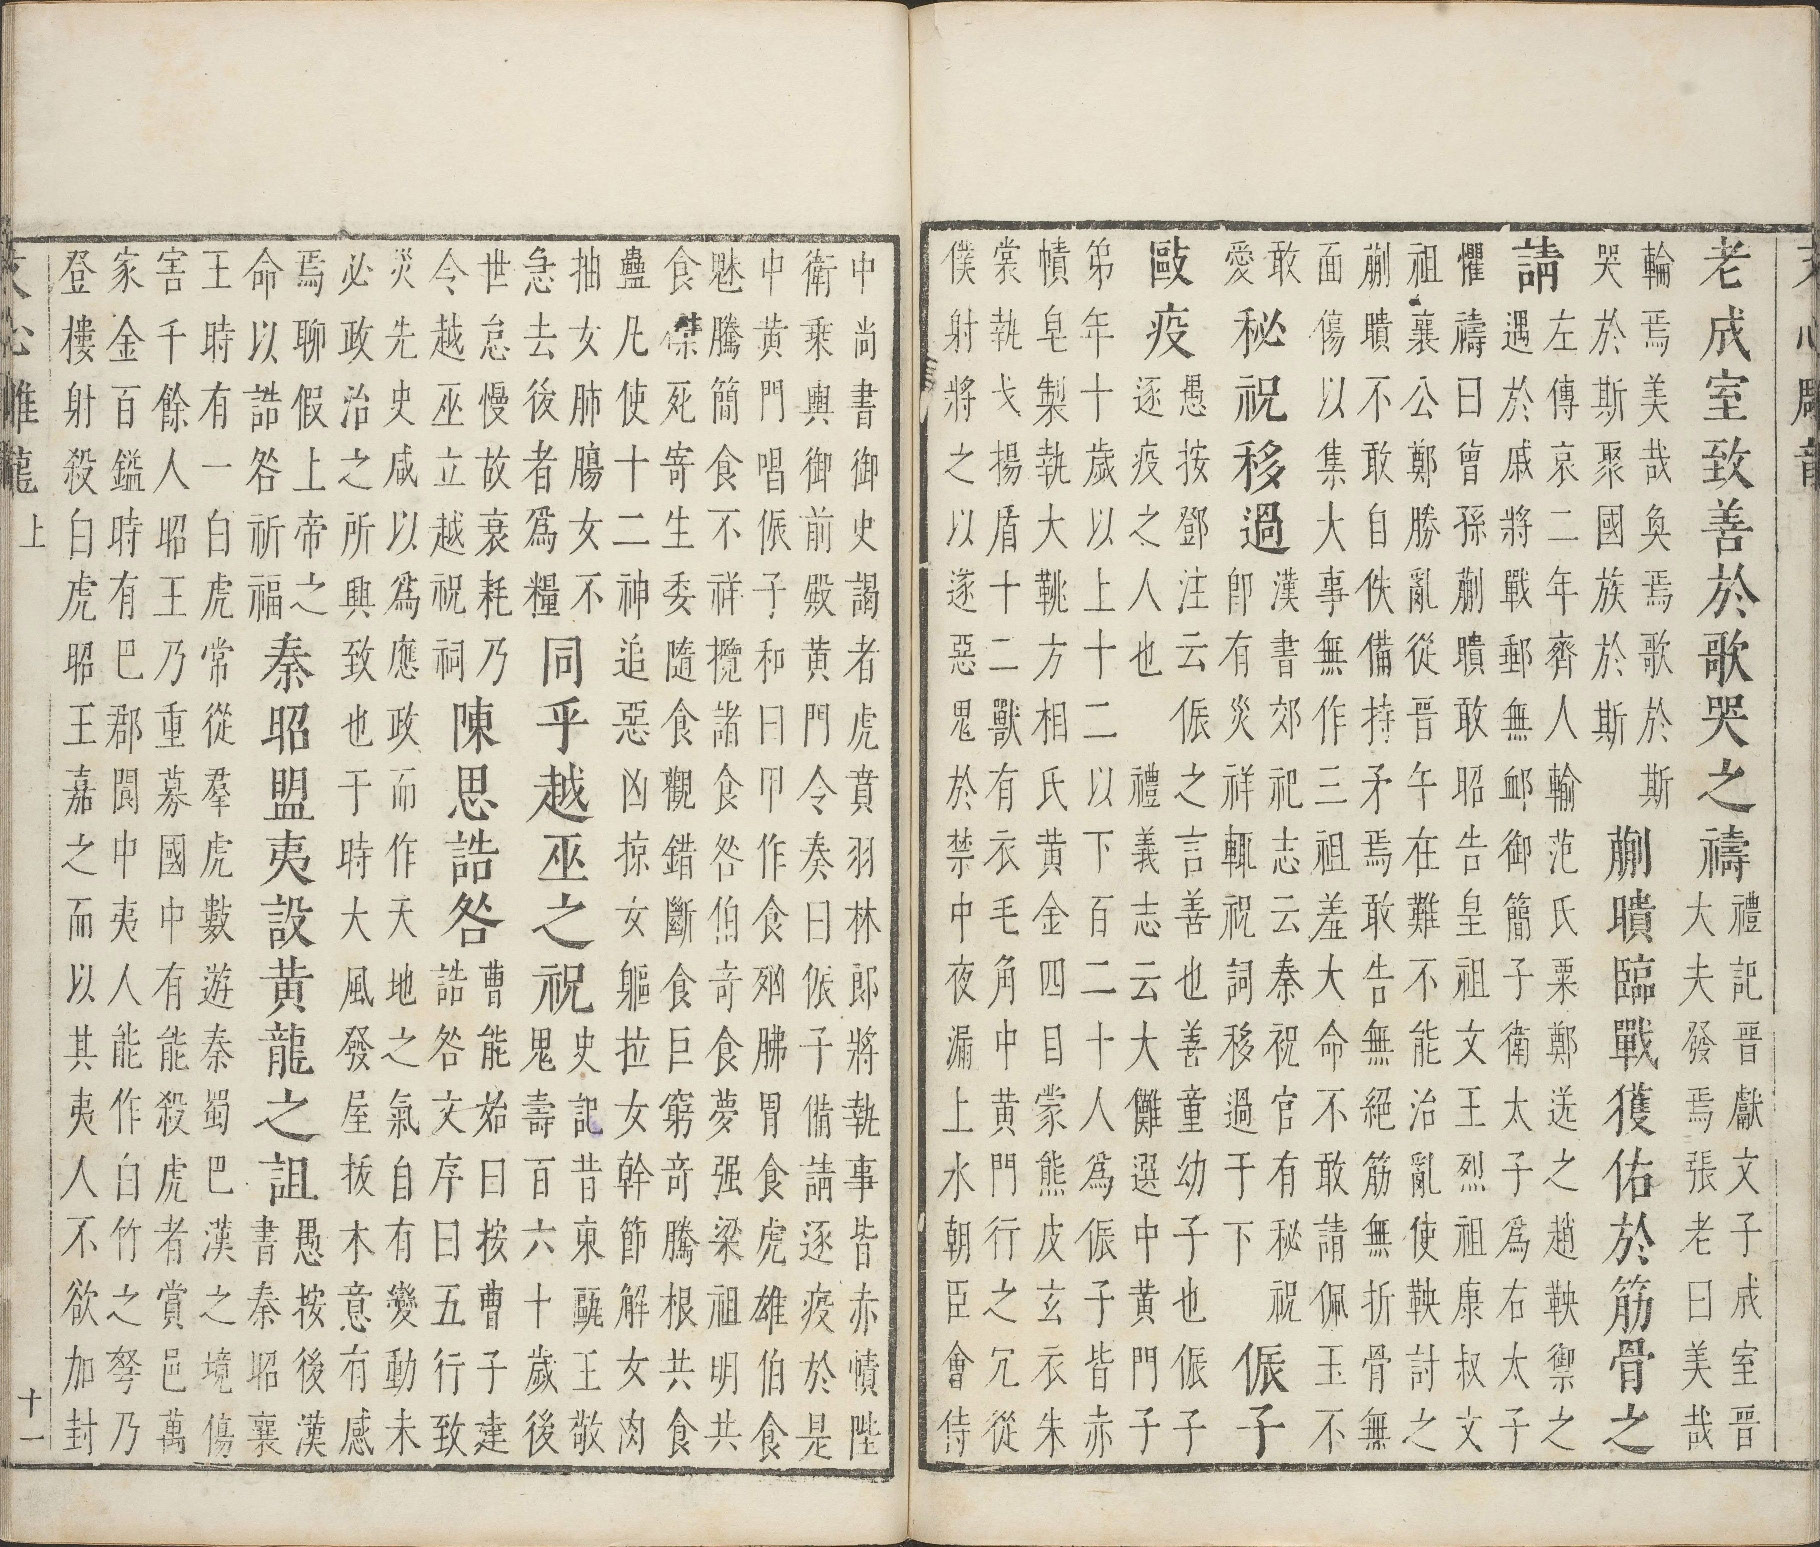 文心雕龍
老成室致善於歌哭之禱
禮記晉獻文子成室晉
大夫發焉張老曰美哉
輪焉美哉奐焉歌於斯
哭於斯聚國族於斯
蒯聵臨戰獲佑於筋骨之
請
左傳哀二年齊人輸范氏粟鄭送之趙鞅禦之
遇於戚將戰郵無卹御簡子衛太子爲右太子
懼禱曰曾孫蒯聵敢昭告皇祖文王烈祖康叔文
祖襄公鄭勝亂從晉午在難不能治亂使鞅討之
蒯聵不敢自佚備持矛焉敢告無絕筋無折骨無
面傷以集大事無作三祖羞大命不敢請佩玉不
敢
愛
秘祝移過
漢書郊祀志云秦祝官有秘祝
卽有災祥輒祝詞移過于下
侲子
敺疫
愚按鄧注云侲之言善也善童幼子也侲子
逐疫之人也 禮義志云大儺選中黃門子
弟年十歲以上十二以下百二十人爲侲子皆赤
幘皂製執大鞉方相氏黃金四目蒙熊皮玄衣朱
裳執戈揚盾十二獸有衣毛角中黃門行之冗從
僕射將之以逐惡鬼於禁中夜漏上水朝臣會侍
中尚書御史謁者虎賁羽林郎將執事皆赤幘陛
衛乘輿御前殿黃門令奏曰侲子備請逐疫於是
中黃門唱侲子和曰甲作食𣧑胇胃食虎雄伯食
魅騰簡食不祥攬諸食咎伯奇食夢强梁祖明共
食磔死寄生委隨食觀錯斷食巨窮奇騰根共食
蠱凡使十二神追惡凶掠女軀拉女幹節解女肉
抽女肺腸女不
急去後者爲糧
同乎越巫之祝
史記昔東甌王敬
鬼壽百六十歲後
世怠慢故衰耗乃
令越巫立越祝祠
陳思誥咎
曹能始曰按曹子建
誥咎文序曰五行致
災先史咸以爲應政而作天地之氣自有變動未
必政治之所興致也于時大風發屋拔木意有感
焉聊假上帝之
命以誥咎祈福
秦昭盟夷設黃龍之詛
愚按後漢
書秦昭襄
王時有一白虎常從羣虎數遊秦蜀巴漢之境傷
害千餘人昭王乃重募國中有能殺虎者賞邑萬
家金百鎰時有巴郡閬中夷人能作白竹之弩乃
登樓射殺白虎昭王嘉之而以其夷人不欲加封
文心雕龍 上 十一